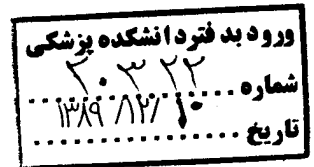 ورود بد فتردانشکده پزشکی
شماره ۲۰۳۲۲
تاریخ ۱۳۸۹/۱۲/۱۰